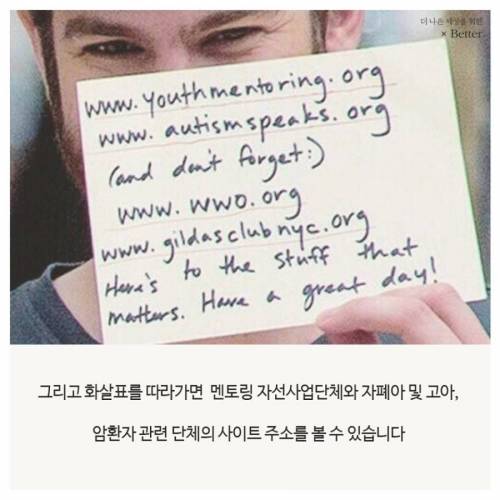 더 나은 세상을 위한
× Better
www.youthmentoring.org
www.autismspeaks.org
(and don't forget:)
www.wwo.org
www.gildasclubnyc.org
Here's to the stuff that
matters. Have a great day!
그리고 화살표를 따라가면 멘토링 자선사업단체와 자폐아 및 고아,
암환자 관련 단체의 사이트 주소를 볼 수 있습니다